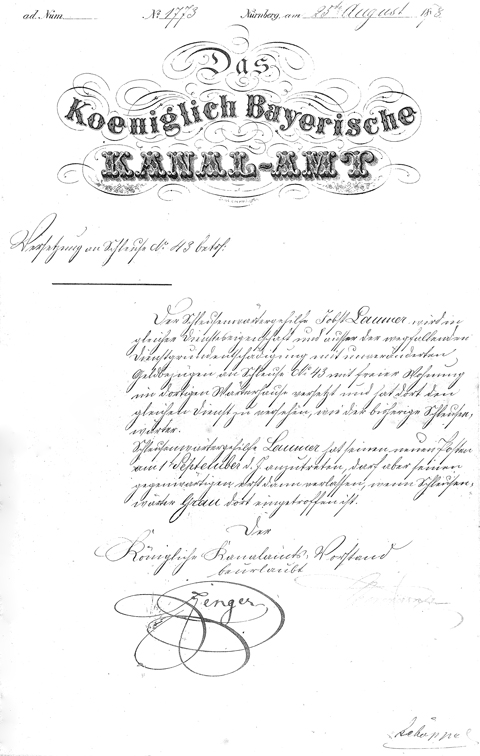 ad. Num. No. 1773 Nürnberg, am 25ten August 1873.
Das
Koeniglich Bayerische
KANAL-AMT
Versetzung an Schleuse No 43 betr.
Der Schleusenwärtergehilfe Jobst Laumer wird in
gleicher Diensteseigenschaft und ausser der wegfallenden
Dienstgrundentschädigung mit unveränderten
Geldbezügen an Schleuse No 43 mit freier Wohnung
im dortigen Warterhause versetzt und hat dort den
gleichen Dienst zu versehen, wie der bisherige Schleusen-
wärter.
Schleusenwärtergehilfe Laumer hat seinen neuen Posten
am 1ten September d. J. anzutreten, darf aber seinen
gegenwärtigen erst dann verlassen, wenn Schleusen-
wärter Grau dort eingetroffen ist.
Der
Königliche Kanalamts-Vorstand
beurlaubt
Zenger
Schöppel